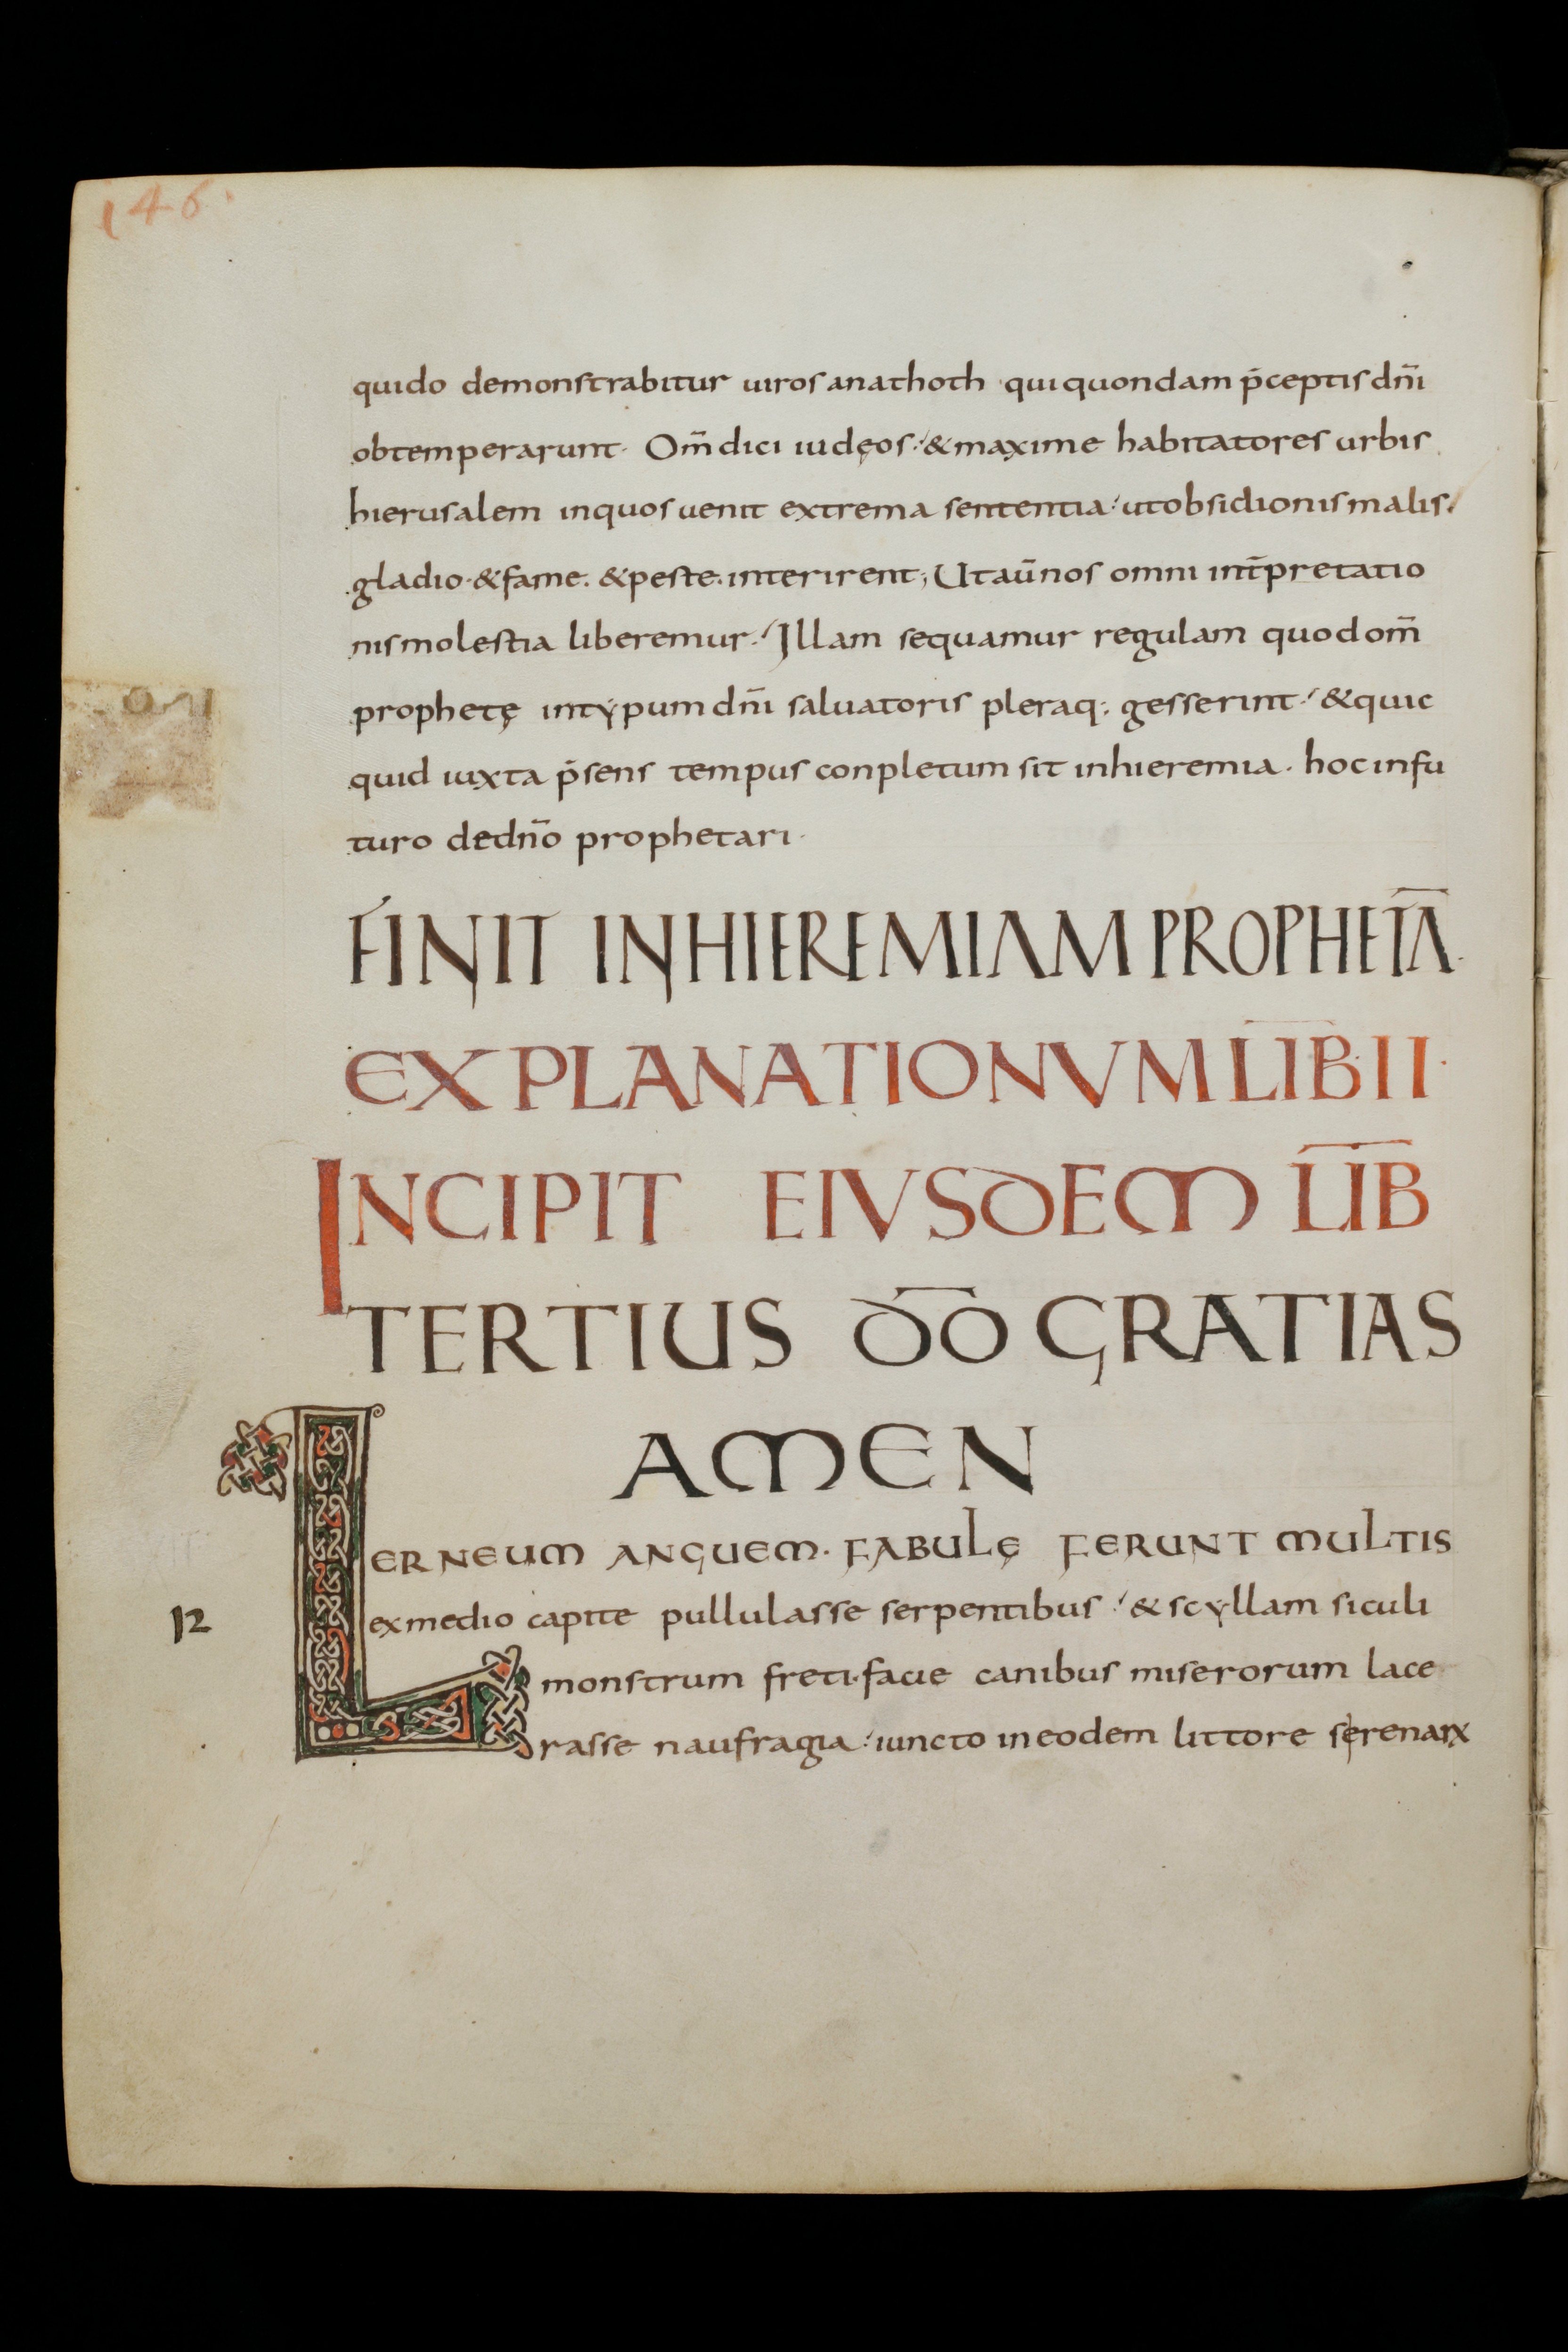 146.
quido demonstrabitur uiros anathoth qui quondam p̄ceptis dn̄i
obtemperarunt· Om̄ dici iudęos·/ & maxime habitatores urbis
hierusalem inquos uenit extrema sententia·/ ut obsidionis malis·/
gladio·&fame·&peste·interirent; Utaūnos omni int̄pretatio
nis molestia liberemur·/ Illam sequamur regulam quod om̄
prophetę intypum dn̄i saluatoris pleraq; gesserint·/ & quic
quid iuxta p̄sens tempus conpletum sit inhieremia· hoc infu
turo dedn̄o prophetari·
FINIT INHIEREMIAM PROPHETĀ·
EXPLANATIONVM LIB̄·II·
INCIPIT EIVSDEM LIB̄
TERTIUS D̄O GRATIAS
AMEN
LERNEUM ANGUEM· FABULĘ FERUNT MULTIS
ex medio capite pullulasse serpentibus·/ & scyllam siculi
12
monstrum freti·facie canibus miserorum lace
rasse naufragia·/ iuncto in eodem littore serenarx